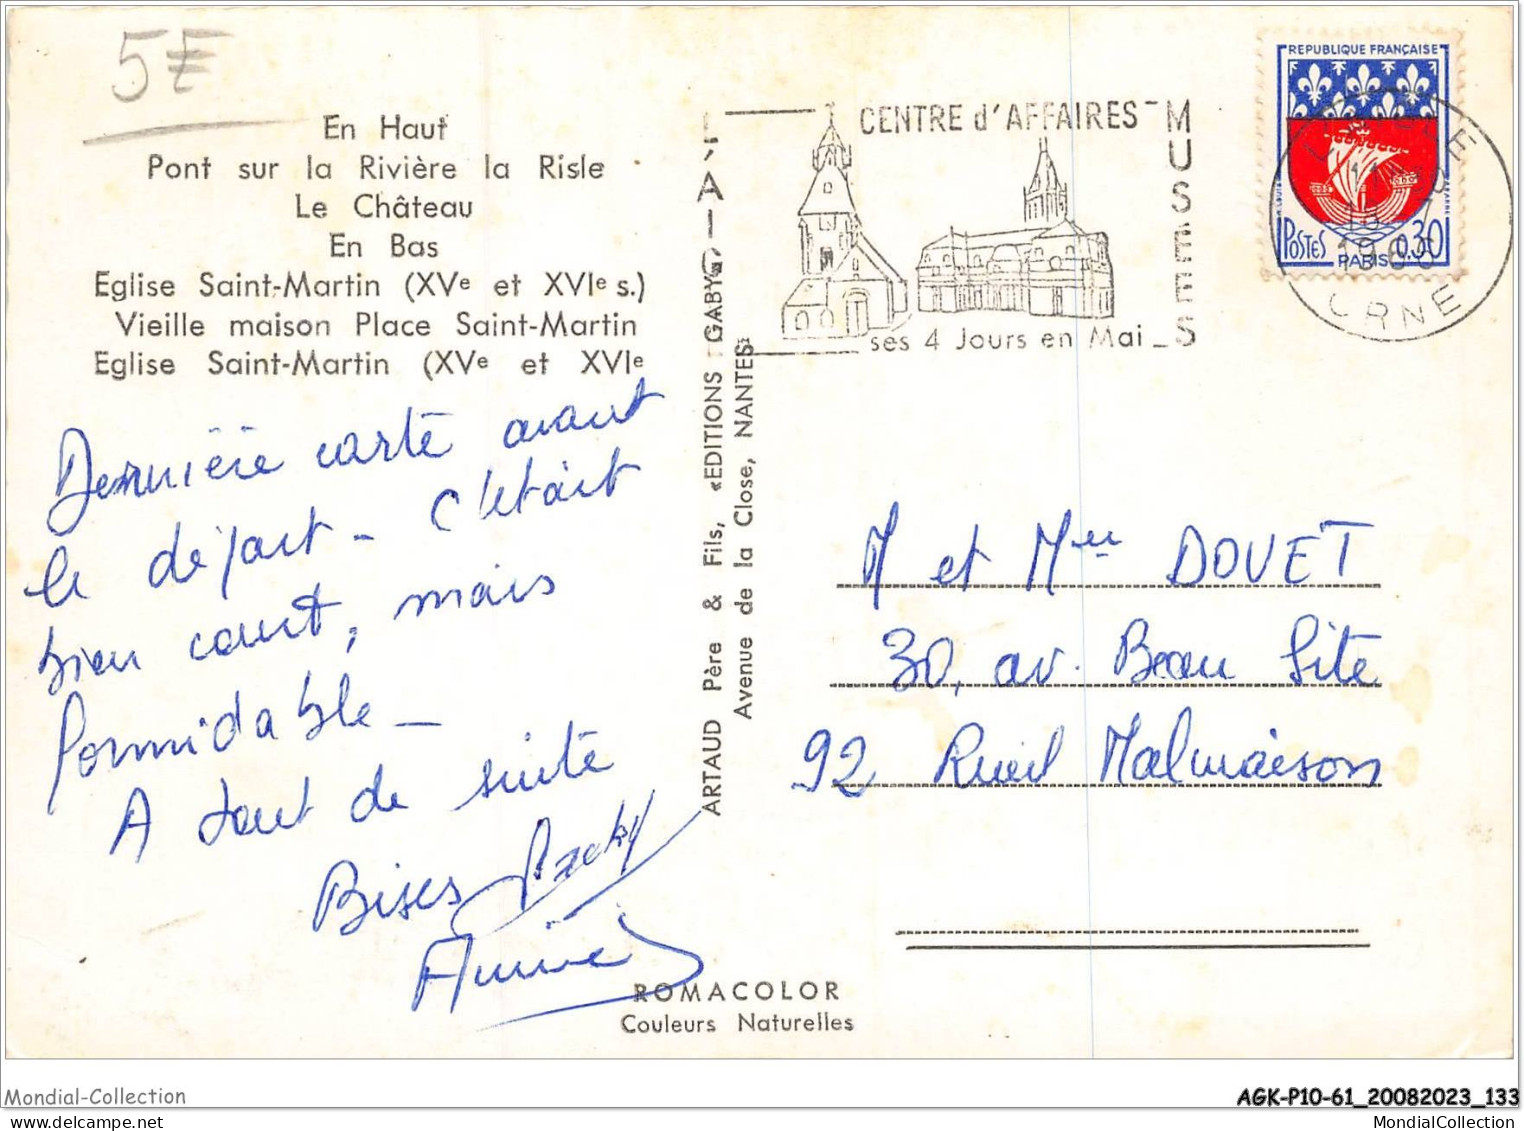 5€
En Haut
Pont sur la Rivière la Risle
Le Château
En Bas
Eglise Saint-Martin (XVe et XVIe s.)
Vieille maison Place Saint-Martin
Eglise Saint-Martin (XVe et XVIe
Dernière carte avant
le départ - C'était
bien court, mais
formidable -
A tout de suite
Bises
L'AIGLE
CENTRE d'AFFAIRES -
MUSEES
ses 4 Jours en Mai -
REPUBLIQUE FRANÇAISE
POSTES 0,30
PARIS
L'AIGLE
1966
ORNE
ARTAUD Père & Fils, «EDITIONS GABY»
Avenue de la Close, NANTES
M et Mme DOUET
30, av. Beau Site
92 Rueil Malmaison
ROMACOLOR
Couleurs Naturelles
Mondial-Collection
AGK-P10-61_20082023_133
MondialCollection